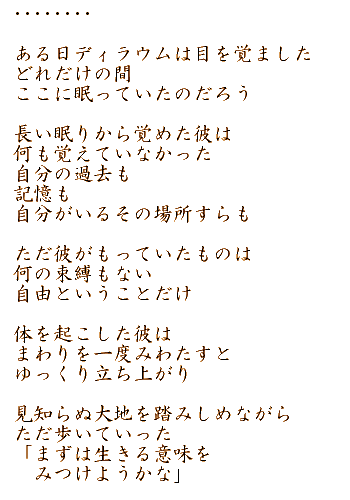 ・・・・・・・・
ある日ディラウムは目を覚ました
どれだけの間
ここに眠っていたのだろう
長い眠りから覚めた彼は
何も覚えていなかった
自分の過去も
記憶も
自分がいるその場所すらも
ただ彼がもっていたものは
何の束縛もない
自由ということだけ
体を起こした彼は
まわりを一度みわたすと
ゆっくり立ち上がり
見知らぬ大地を踏みしめながら
ただ歩いていった
「まずは生きる意味を
　みつけようかな」